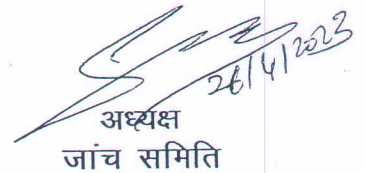 26/4/2023
अध्यक्ष
जांच समिति